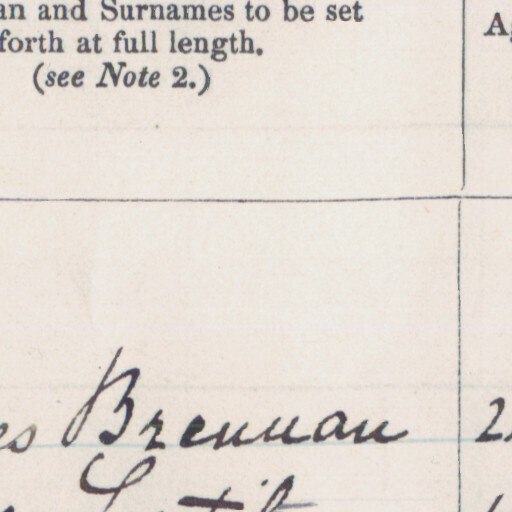 an and Surnames to be set
forth at full length.
(see Note 2.)
es Brennan